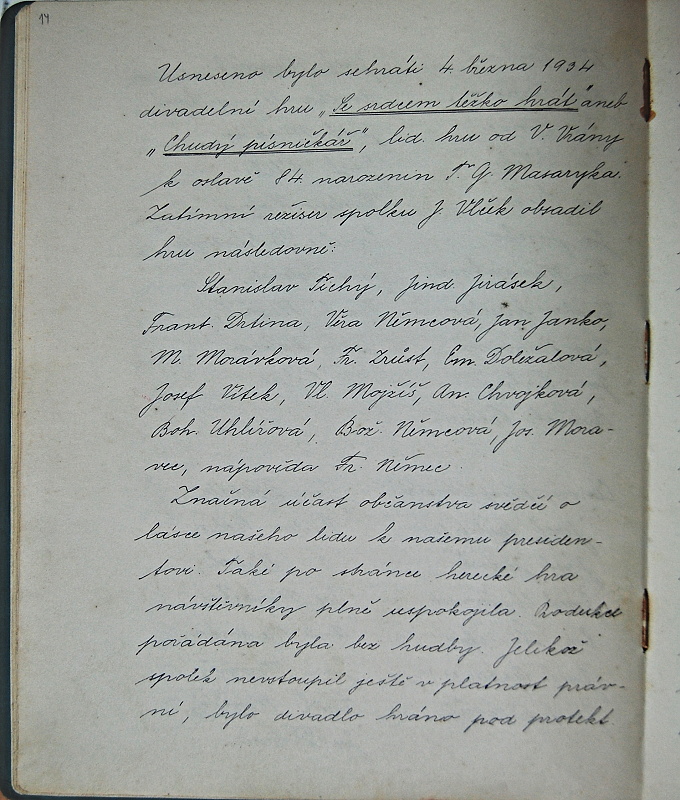 14
Usneseno bylo sehráti 4. března 1934
divadelní hru „Se srdcem těžko hrát" aneb
„Chudý písničkář", lid. hru od V. Vrány
k oslavě 84. narozenin T. G. Masaryka.
Zatímní režiser spolku J. Vlček obsadil
hru následovně:
Stanislav Tichý, Jind. Jirásek,
Frant. Drtina, Věra Němcová, Jan Janko,
M. Morávková, Fr. Zrůst, Em. Doležalová,
Josef Vítek, Vl. Mojžíš, An. Chvojková,
Boh. Uhlířová, Bož. Němcová, Jos. Mora-
vec, nápověda Fr. Němec.
Značná účast občanstva svědčí o
lásce našeho lidu k našemu presiden-
tovi. Také po stránce herecké hra
návštěvníky plně uspokojila. Produkce
pořádána byla bez hudby. Jelikož
spolek nevstoupil ještě v platnost práv-
ní, bylo divadlo hráno pod protekt.